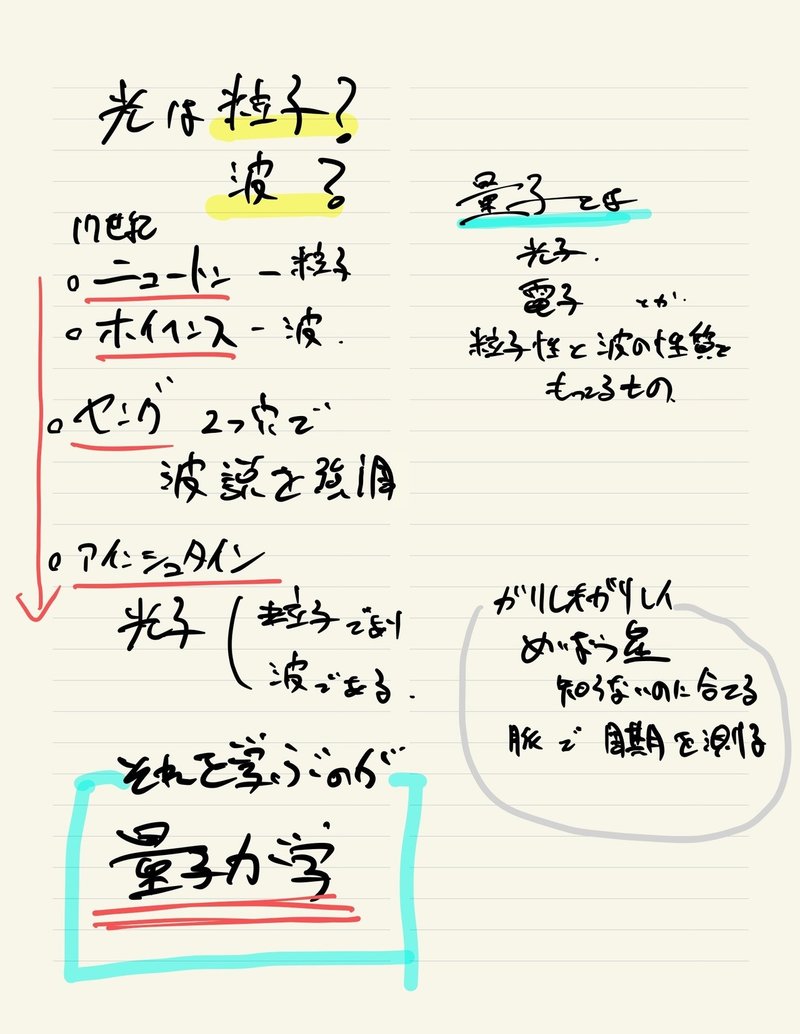 光は粒子?
波?
17世紀
ニュートン - 粒子
ホイヘンス - 波.
ヤング 2つ穴で
波説を強調
アインシュタイン
光子 (粒子であり
波である.
それを学ぶのが
量子力学
量子とは
光子.
電子 とか.
粒子性と波の性質を
もってるもの
ガリレオガリレイ
めいおう星
知らないのに当てる
脈で周期を測る